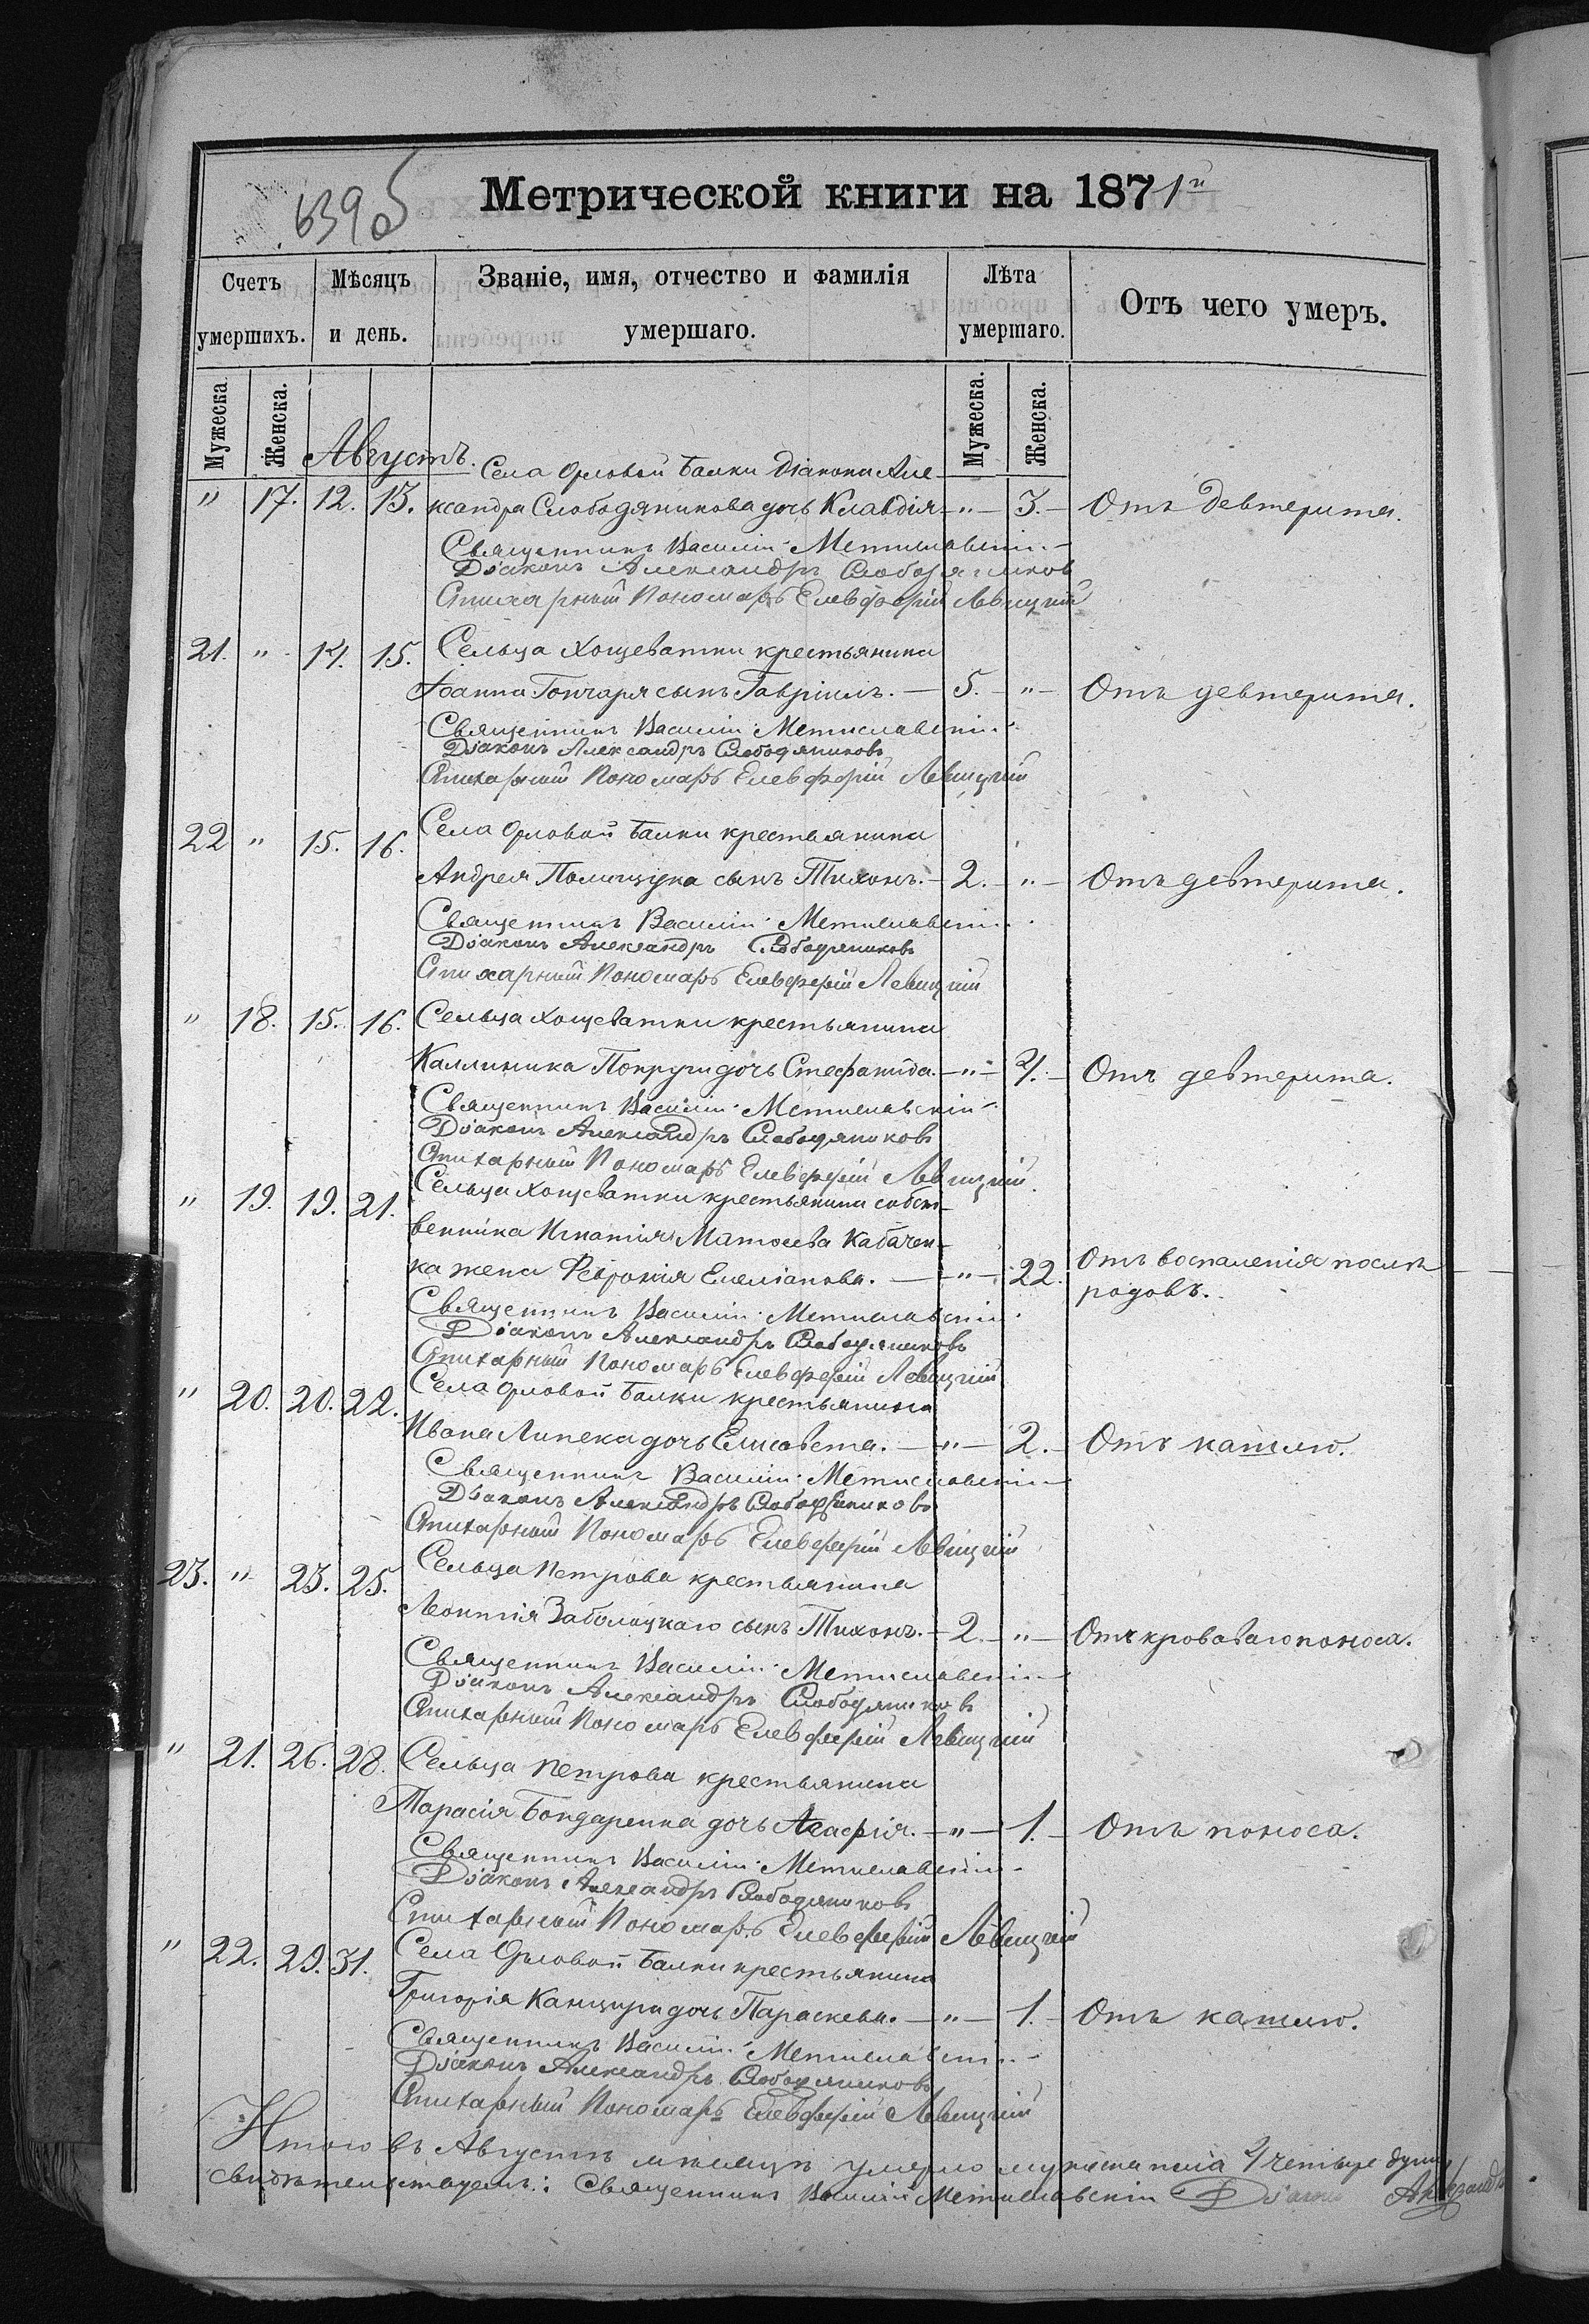 639об
Метрической книги на 1871й
Счетъ умершихъ.
Мѣсяцъ и день.
Званіе, имя, отчество и фамилія умершаго.
Лѣта умершаго.
Отъ чего умеръ.
Мужеска.
Женска.
Мужеска.
Женска.
Августъ.
Села Орловой Балки діакона Але-
" 17. 12. 13. ксандра Слободяникова дочь Клавдія — " — 3. — Отъ девтерита.
Священникъ Василій Метиславскій
Діаконъ Александръ Слободяниковъ
Стихарный Пономарь Елевферій Левицкій
21. " 14. 15. Сельца Хощеватки крестьянина
Іоанна Гончаря сынъ Гавріилъ. — 5. — " — Отъ девтерита.
Священникъ Василій Метиславскій
Діаконъ Александръ Слободяниковъ
Стихарный Пономарь Елевферій Левицкій
22 " 15. 16. Села Орловой Балки крестьянина
Андрея Полищука сынъ Тихонъ. — 2. — " — Отъ девтерита.
Священникъ Василій Метиславскій
Діаконъ Александръ Слободяниковъ
Стихарный Пономарь Елевферій Левицкій
" 18. 15. 16. Сельца Хощеватки крестьянина
Каллиника Покруги дочь Стефанида. — " — 4. — Отъ девтерита.
Священникъ Василій Метиславскій
Діаконъ Александръ Слободяниковъ
Стихарный Пономарь Елевферій Левицкій
" 19. 19. 21. Сельца Хощеватки крестьянина собст-
венника Игнатія Матвѣева Кабачен-
ка жена Февронія Емеліанова. — " — 22. Отъ воспаленія послѣ
родовъ.
Священникъ Василій Метиславскій
Діаконъ Александръ Слободяниковъ
Стихарный Пономарь Елевферій Левицкій
" 20. 20. 22. Села Орловой Балки крестьянина
Ивана Липека дочь Елисавета. — " — 2. — Отъ кашлю.
Священникъ Василій Метиславскій
Діаконъ Александръ Слободяниковъ
Стихарный Пономарь Елевферій Левицкій
23. " 23. 25. Сельца Петрова крестьянина
Леонтія Заболоцкаго сынъ Тихонъ. — 2. — " — Отъ кроваваго поноса.
Священникъ Василій Метиславскій
Діаконъ Александръ Слободяниковъ
Стихарный Пономарь Елевферій Левицкій
" 21. 26. 28. Сельца Петрова крестьянина
Тарасія Бондаренка дочь Агафія. — " — 1. — Отъ поноса.
Священникъ Василій Метиславскій
Діаконъ Александръ Слободяниковъ
Стихарный Пономарь Елевферій Левицкій
" 22. 29. 31. Села Орловой Балки крестьянина
Григорія Канцура дочь Параскева. — " — 1. — Отъ кашлю.
Священникъ Василій Метиславскій
Діаконъ Александръ Слободяниковъ
Стихарный Пономарь Елевферій Левицкій
Итого въ Августѣ мѣсяцѣ умерло мужеска пола 4 четыре души
свидѣтельствуемъ: Священникъ Василій Метиславскій Діаконъ Александръ